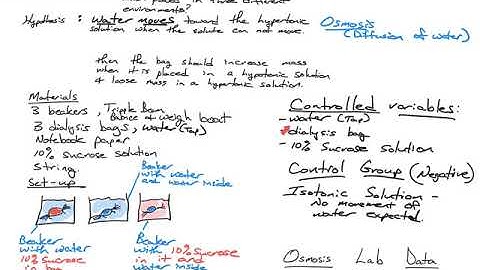 environments?
Hypothesis : Water moves toward the hypertonic
solution when the solute can not move.
Osmosis
(Diffusion of water)
then the bag should increase mass
when it is placed in a hypotonic solution
& loose mass in a hypertonic solution.
Materials
3 beakers, Triple Beam
Balance & weigh boat
3 dialysis bags, water (Tap)
Notebook paper
10% sucrose solution
String
Set-up
Beaker
with water
and water inside
Beaker
with water
10% Sucrose
in bag
Beaker
with 10% Sucrose
in it and
water inside
Controlled variables:
- water (Tap)
- dialysis bag
- 10% Sucrose solution
Control Group (Negative)
Isotonic Solution -
No movement of
water expected.
Osmosis Lab Data